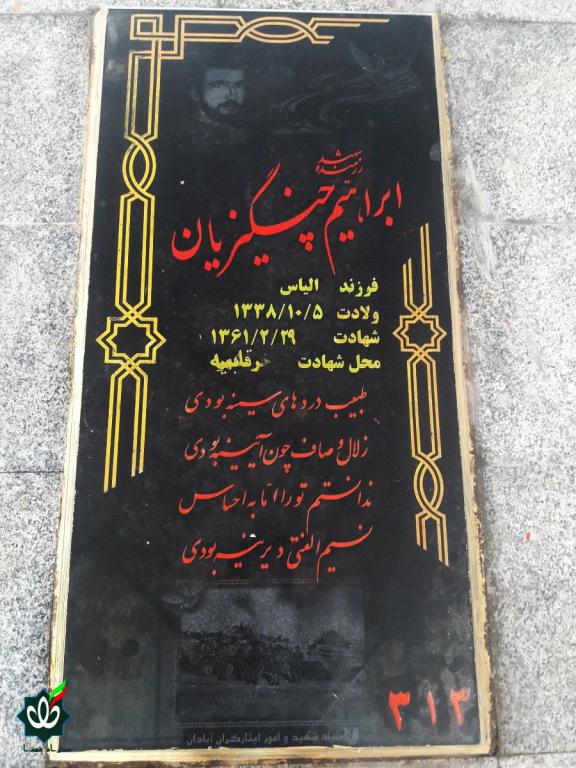 رزمنده شهید
ابراهیم چنگیزیان
فرزند الیاس
ولادت ۱۳۳۸/۱۰/۵
شهادت ۱۳۶۱/۲/۲۹
محل شهادت رقابیه
طبیب دردهای سینه بودی
زلال و صاف چون آیینه بودی
ندانستم تو را اما به احساس
نسیم الفتی دیرینه بودی
۳۱۳
بنیاد شهید و امور ایثارگران آبادان